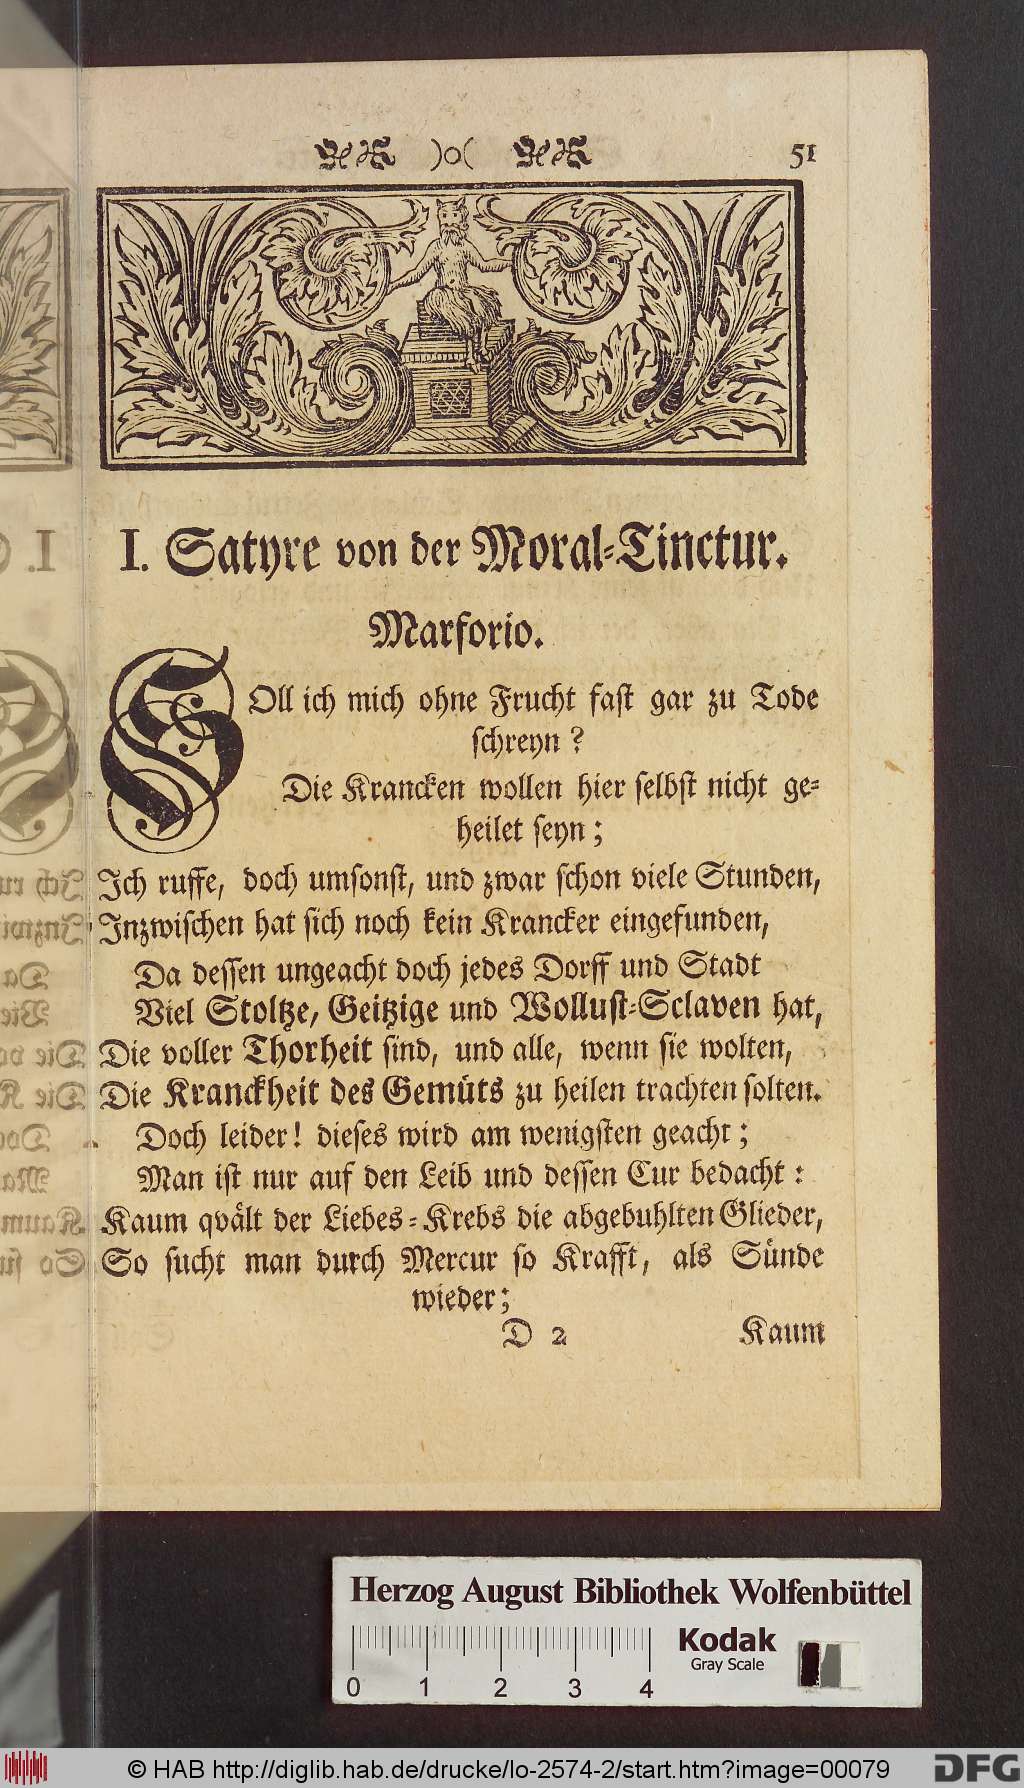 )o( 51
I. Satyre von der Moral-Tinctur.
Marforio.
SOll ich mich ohne Frucht fast gar zu Tode
schreyn?
Die Krancken wollen hier selbst nicht ge-
heilet seyn;
Ich ruffe, doch umsonst, und zwar schon viele Stunden,
Inzwischen hat sich noch kein Krancker eingefunden,
Da dessen ungeacht doch jedes Dorff und Stadt
Viel Stoltze, Geitzige und Wollust-Sclaven hat,
Die voller Thorheit sind, und alle, wenn sie wolten,
Die Kranckheit des Gemüts zu heilen trachten solten.
Doch leider! dieses wird am wenigsten geacht;
Man ist nur auf den Leib und dessen Cur bedacht:
Kaum qvält der Liebes-Krebs die abgebuhlten Glieder,
So sucht man durch Mercur so Krafft, als Sünde
wieder;
D 2 Kaum
Herzog August Bibliothek Wolfenbüttel
Kodak
Gray Scale
0 1 2 3 4
© HAB http://diglib.hab.de/drucke/lo-2574-2/start.htm?image=00079
DFG